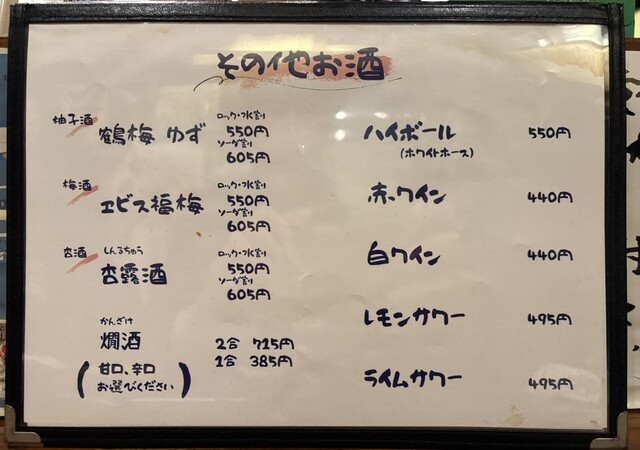 その他お酒
柚子酒
鶴梅 ゆず
ロック・水割り
550円
ソーダ割り
605円
梅酒
エビス福梅
ロック・水割り
550円
ソーダ割り
605円
杏酒
しんるちゅう
杏露酒
ロック・水割り
550円
ソーダ割り
605円
かんざけ
燗酒
2合 715円
1合 385円
(甘口、辛口
お選びください)
ハイボール 550円
(ホワイトホース)
赤ワイン 440円
白ワイン 440円
レモンサワー 495円
ライムサワー 495円